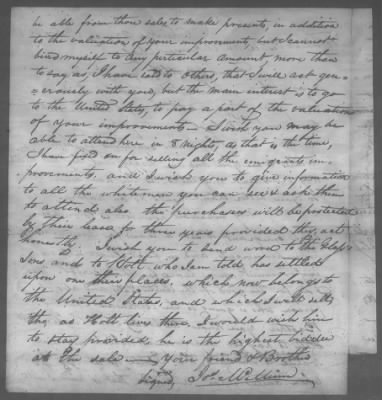 be able from those sales to make presents, in addition
to the valuation of your improvements, but I cannot
bind myself to any particular amount more than
to say as I have said to others, that I will act gen-
=erously with you, but the main interest is to go
to the United States, to pay a part of the valuation
of your improvements — I wish you may be
able to attend here in 8 nights, as that is the time,
I have fixed on for selling all the emigrants im-
provements, and I wish you to give information
to all the whitemen you can see & ask them
to attend also. the purchasers will be protected
by these leases for three years provided they act
honestly. I wish you to send word to the
and to Holt who I am told has settled
upon one of their places, which now belongs to
the United States, and which I will sell,
tho as Holt lives there, I would wish him
to stay provided, he is the highest bidder
at the sale — Your friend & Brother
Signed, Jos McMinn